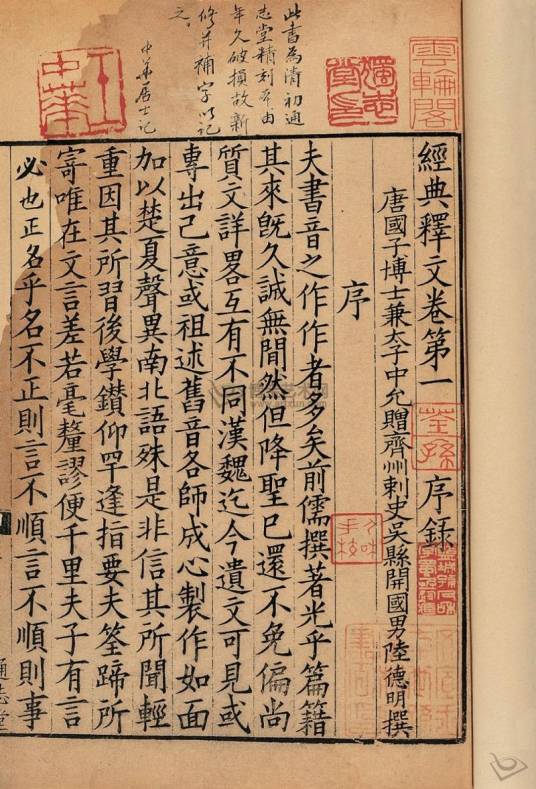 此書為清初通
志堂精刻本由
年久破損故新
修并補字以記
之
中华居士記
經典釋文卷第一
序錄
唐國子博士兼太子中允贈齊州刺史吳縣開國男陸德明撰
序
夫書音之作作者多矣前儒撰著光乎篇籍
其來旣久誠無閒然但降聖已還不免偏尚
質文詳畧互有不同漢魏迄今遺文可見或
專出己意或祖述舊音各師成心製作如面
加以楚夏聲異南北語殊是非信其所聞輕
重因其所習後學鑽仰罕逢指要夫筌蹄所
寄唯在文言差若毫釐謬便千里夫子有言
必也正名乎名不正則言不順言不順則事
通志堂
雲輪閣
荃孫